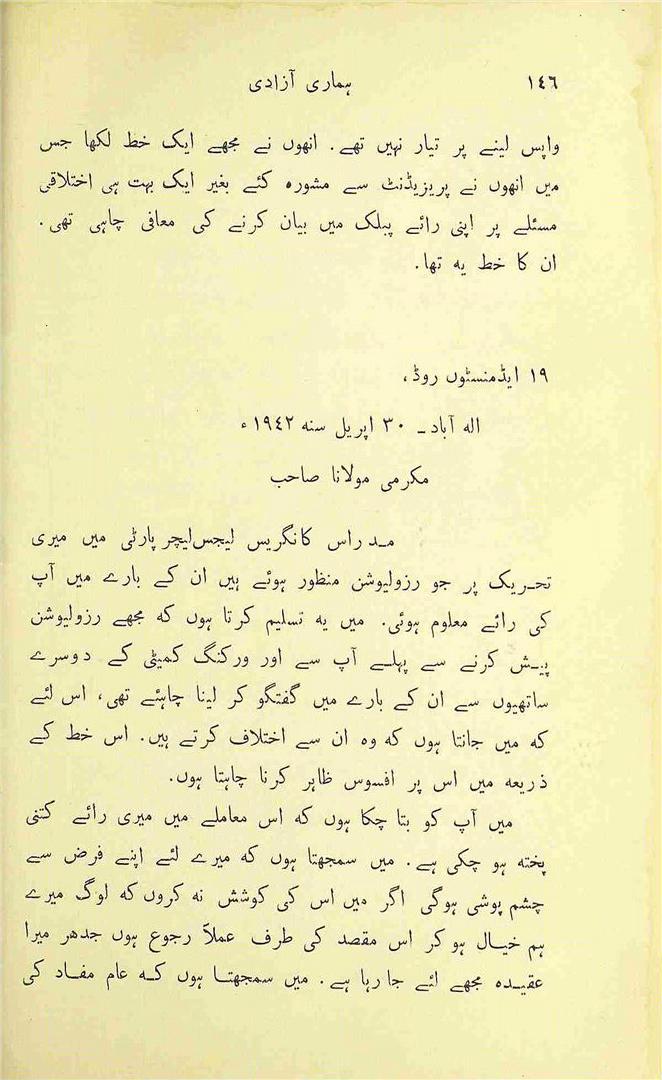 ١٤٦ ہماری آزادی
واپس لینے پر تیار نہیں تھے. انھوں نے مجھے ایک خط لکھا جس
میں انھوں نے پریزیڈنٹ سے مشورہ کئے بغیر ایک بہت ہی اختلافی
مسئلے پر اپنی رائے پبلک میں بیان کرنے کی معافی چاہی تھی.
ان کا خط یہ تھا.
١٩ ایڈمنسٹوں روڈ،
الہ آباد۔ ٣٠ اپریل سنہ ١٩٤٢ء
مکرمی مولانا صاحب
مدراس کانگریس لیجس‌لیچر پارٹی میں میری
تحریک پر جو رزولیوشن منظور ہوئے ہیں ان کے بارے میں آپ
کی رائے معلوم ہوئی. میں یہ تسلیم کرتا ہوں کہ مجھے رزولیوشن
پیش کرنے سے پہلے آپ سے اور ورکنگ کمیٹی کے دوسرے
ساتھیوں سے ان کے بارے میں گفتگو کر لینا چاہئے تھی، اس لئے
کہ میں جانتا ہوں کہ وہ ان سے اختلاف کرتے ہیں. اس خط کے
ذریعہ میں اس پر افسوس ظاہر کرنا چاہتا ہوں.
میں آپ کو بتا چکا ہوں کہ اس معاملے میں میری رائے کتنی
پختہ ہو چکی ہے. میں سمجھتا ہوں کہ میرے لئے اپنے فرض سے
چشم پوشی ہوگی اگر میں اس کی کوشش نہ کروں کہ لوگ میرے
ہم خیال ہو کر اس مقصد کی طرف عملاً رجوع ہوں جدھر میرا
عقیدہ مجھے لئے جا رہا ہے. میں سمجھتا ہوں کہ عام مفاد کی